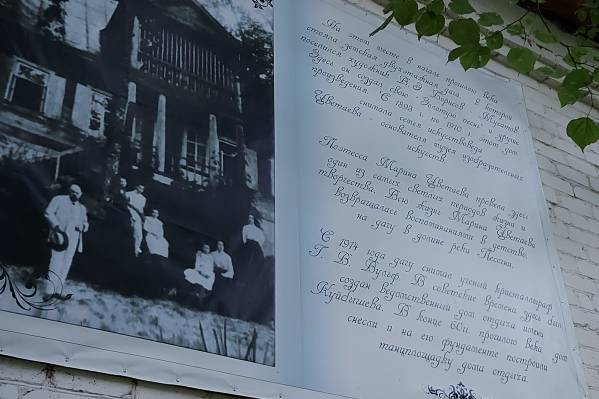 На этом месте в начале прошлого века
стояла земская двухэтажная дача, в которой
поселился художник В. Э. Борисов - Мусатов
Здесь он создал свои
произведения. С 1898 г. по 1910 г. этот дом
снимала семья искусствоведа
Цветаева - основателя музея изобразительных
искусств.
Поэтесса Марина Цветаева провела здесь
один из самых светлых периодов жизни и
творчества. Всю жизнь Марина Цветаева
возвращалась воспоминаниями в детство,
на дачу в долине реки "Песочка.
С 1974 года дачу снимал ученый кристаллограф
Г. В. Вульф. В советские времена здесь был
создан ведомственный дом отдыха имени
Куйбышева. В конце 60х. прошлого века дом
снесли и на его фундаменте построили
танцплощадку дома отдыха.